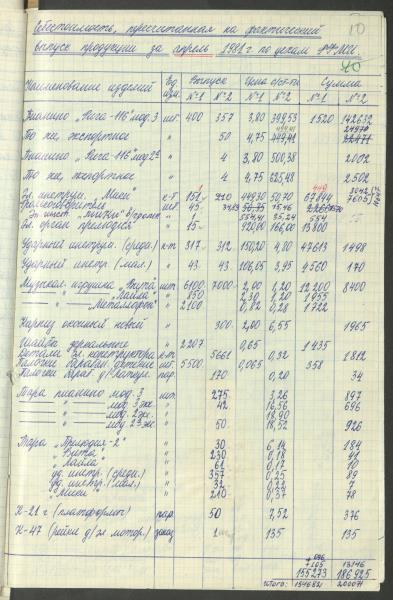 Себестоимость, пересчитанная на фактический
выпуск продукции за апрель 1981 г. по цехам РФМИ.
10
Наименование изделий Ед. изм. Выпуск Цена с/ст-ти Сумма
№1 №2 №1 №2 №1 №2
Пианино "Рига-116" мод. 3 шт. 400 357 3,80 399,53 1520 142632
То же, экспортное " 50 4,75 449,41 22471
Пианино "Рига-116" мод 2э " 4 3,80 500,38 2002
То же, экспортное " 4 4,75 625,48 2502
Эл. инструм. "Мики" к-т 151 210 449,30 50,70 67844
Эл. орган прелюдия " 15 920,00 166,00 13800
Ударный инструм. (средн.) к-т. 317 312 150,20 4,80 47613 1498
Ударный инстр. (мал.) " 43 43 106,05 3,95 4560 170
Музыкал. игрушка "Вита" шт. 6100 7000 2,00 1,20 12200 8400
— " — "Лайла" " 850 2,30 1,20 1955
— " — "Металлофон" " 2100 0,82 0,28 1722
Карниз оконный новый " 300 2,00 6,55 1965
Шайба зеркальные " 2207 0,65 1435
Детали эл. конструктора к-т. 5661 0,32 1812
Палочки барабан. детские шт. 5500 0,065 358
Палочки бараб. пар. 170 0,20 34
Тара пианино мод. 3 шт. 275 3,26 897
— " — мод. 3 эк. " 42 16,56 696
— " — мод. 2эк. " 18,90
— " — мод. 2э эк " 50 18,52 926
Тара "Прелюдия-2" " 30 6,14 184
"Вита" " 230 0,18 41
"Лайла" " 61 0,17 10
уд. инстр. (средн.) " 357 0,25 89
уд. инстр. (мал.) " 32 0,22 7
"Мики" " 210 0,37 78
К-21 г (платформы) пар. 50 7,52 376
К-47 (рейки д/эл. мотор.) заказ 135 135
155273 186925
Итого: 154682 200071